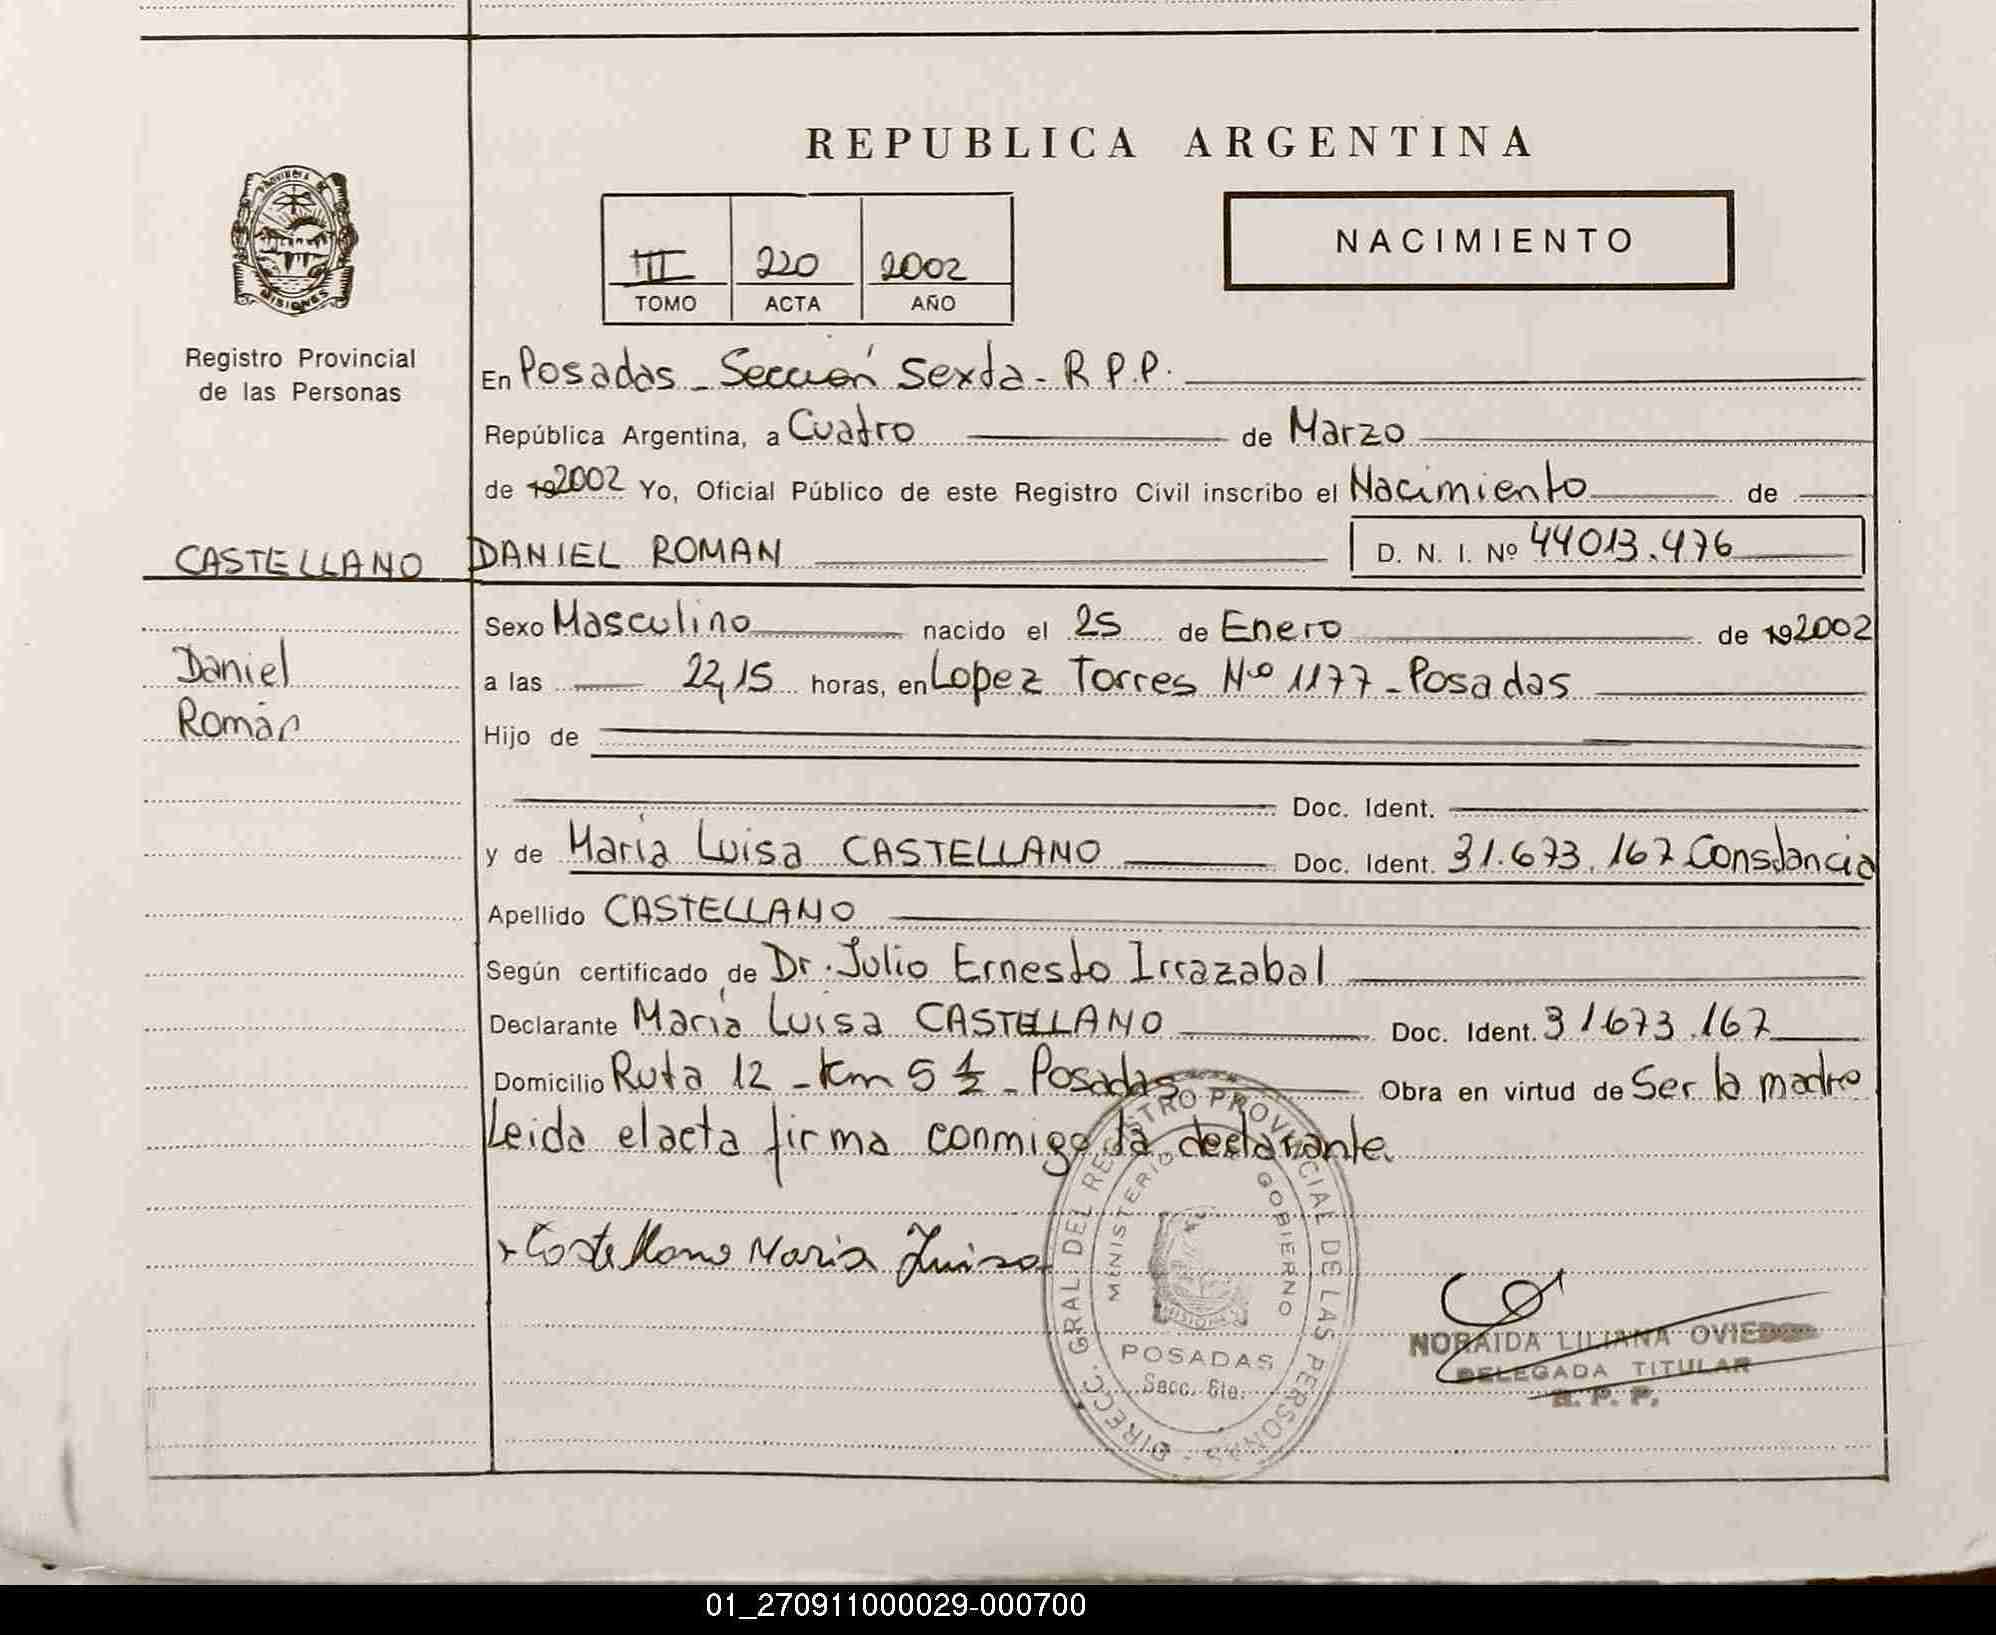 REPUBLICA ARGENTINA
PROVINCIA DE
MISIONES
III 220 2002
TOMO ACTA AÑO
NACIMIENTO
Registro Provincial
de las Personas
En Posadas - Sección Sexta - R.P.P.
República Argentina, a Cuatro de Marzo
de 192002 Yo, Oficial Público de este Registro Civil inscribo el Nacimiento de
CASTELLANO DANIEL ROMAN D. N. I. Nº 44013.476
Sexo Masculino nacido el 25 de Enero de 192002
Daniel
Román
a las 22,15 horas, en Lopez Torres Nº 1177 - Posadas
Hijo de
Doc. Ident.
y de María Luisa CASTELLANO Doc. Ident. 31.673.167 Constancia
Apellido CASTELLANO
Según certificado de Dr. Julio Ernesto Irrazabal
Declarante María Luisa CASTELLANO Doc. Ident. 31673.167
Domicilio Ruta 12 - Km 5 1/2 - Posadas Obra en virtud de Ser la madre
Leida el acta firma conmigo la declarante.
Castellano Maria Luisa
DIRECC. GRAL DEL REGISTRO PROVINCIAL DE LAS PERSONAS
MINISTERIO GOBIERNO
MISIONES
POSADAS
Secc. 6ta.
NORAIDA LILIANA OVIEDO
DELEGADA TITULAR
R. P. P.
01_270911000029-000700